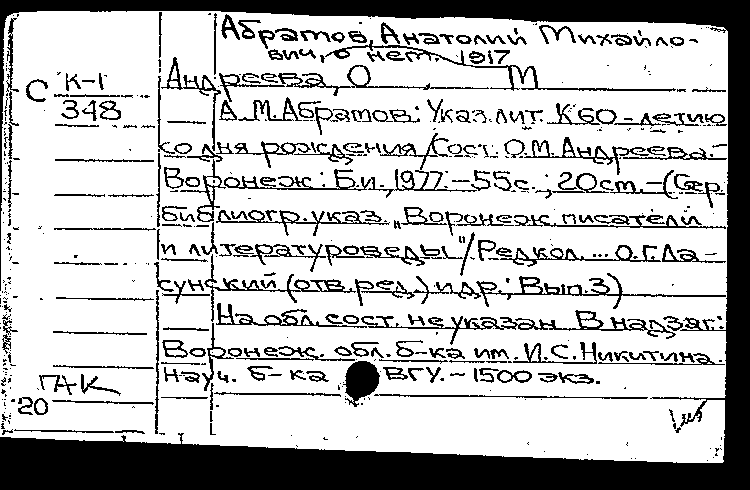 Абрамов, Анатолий Михайло-
вич, о нем. 1917
С К-1
348
Андреева, О М
А. М. Абрамов: Указ. лит. К 60-летию
со дня рождения/Сост. О.М. Андреева.-
Воронеж: Б.и., 1977.-55с.; 20см.-(Сер.
библиогр. указ. „Воронеж. писатели
и литературоведы"/Редкол. ... О.Г. Ла-
сунский (отв. ред.) и др.; Вып. 3)
На обл. сост. не указан. В надзаг.:
Воронеж. обл. б-ка им. И.С. Никитина.
Науч. б-ка ВГУ.- 1500 экз.
ГАК
20